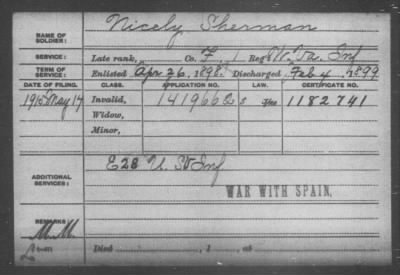 NAME OF SOLDIER: Nicely Sherman
SERVICE: Late rank, Co. F, 1 Reg't W. Va. Inf
TERM OF SERVICE: Enlisted Apr 26, 1898. Discharged Feb 4, 1899
DATE OF FILING. CLASS. APPLICATION NO. LAW. CERTIFICATE NO.
1915 May 14 Invalid, 1419662 S 1182741
Widow,
Minor,
ADDITIONAL SERVICES: E 28 U.S. Inf
WAR WITH SPAIN.
REMARKS:
Died , 1 , at